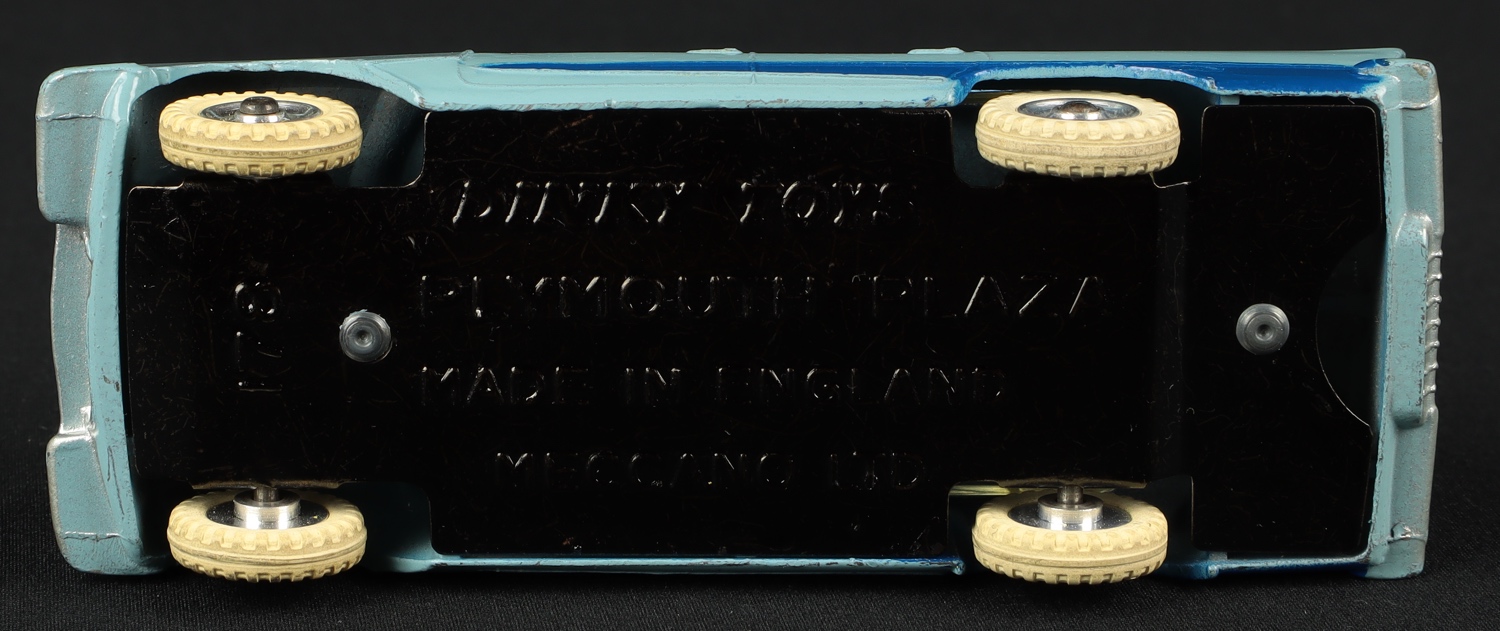 DINKY TOYS
PLYMOUTH PLAZA
MADE IN ENGLAND
MECCANO LTD
178